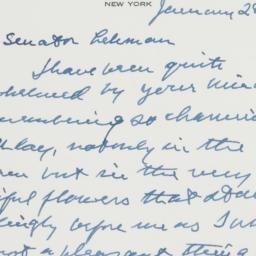 NEW YORK
January 28
Senator Lehman
I have been quite
whelmed by your kind
membering so charmin
hday, not only in the
en but in the very
iful flowers that stand
ingly before me as I wr
not a pleasant thing